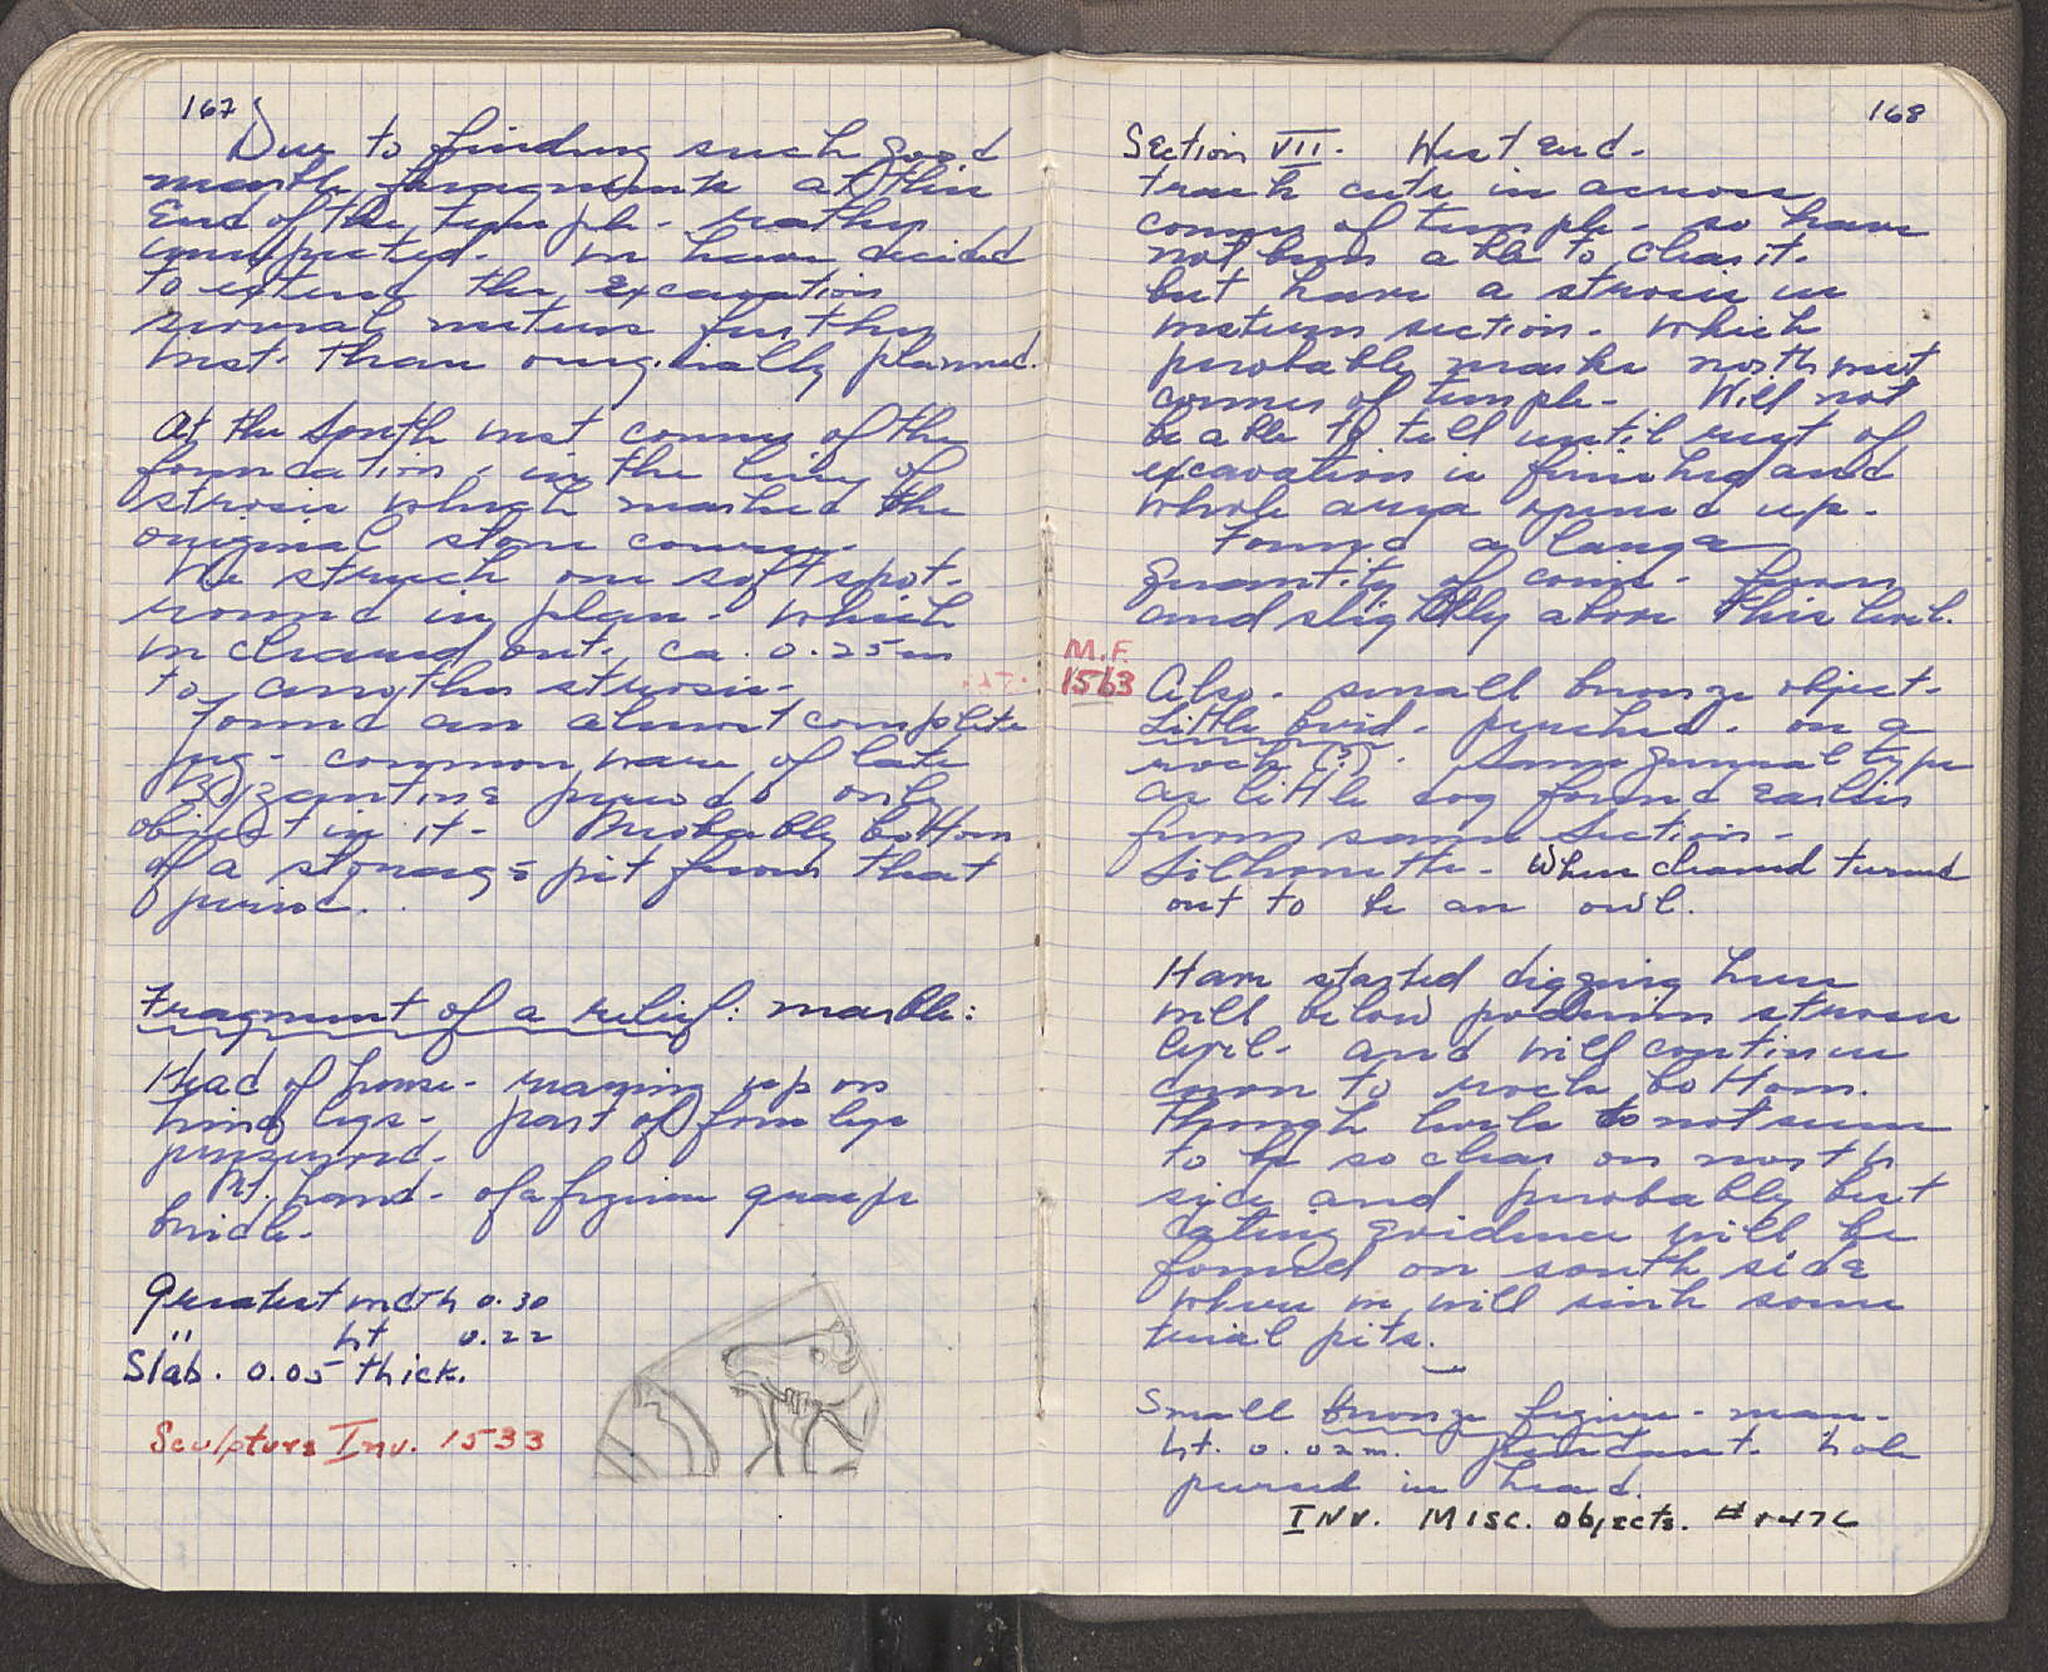 167
Due to finding such good
marble fragments at this
End of the temple - rather
unexpected. we have decided
to extend the Excavation
several meters further
West. than originally planned.
At the South west corner of the
foundation, in the line of
strosis which marked the
original stone courses.
We struck one soft spot -
round in plan - which
we cleaned out. ca. 0.25m
to another strosis -
Found an almost complete
jug - common ware of late
Byzantine period only
object in it - Probably bottom
of a storage pit from that
period.
Fragment of a relief: marble:
Head of horse - rearing up on
hind legs - part of fore legs
preserved -
Rt. hand - of a figure grasps
bridle -
Greatest width 0.30
" ht 0.22
Slab. 0.05 thick.
Sculpture Inv. 1533
168
Section VII. West End -
track cuts in across
corner of temple - so have
not been able to clear it.
but have a strosis in
western section - which
probably marks north west
corner of temple - Will not
be able to tell until rest of
excavation is finished and
whole area opened up.
Found a large
quantity of coins - from
and slightly above this level.
M.F.
1563
Also - small bronze object -
Little bird - perched - on a
rock (?). Same general type
as little dog found earlier
from same Section -
Silhouette - When cleaned turned
out to be an owl.
Have started digging here
well below podium strosis
level - and will continue
down to rock bottom.
Though levels do not seem
to be so clear on north
side and probably best
dating Evidence will be
found on south side
where we will sink some
trial pits.
Small bronze figure - man -
ht. 0.02m. pendant. hole
pierced in head.
Inv. Misc. Objects. #1476